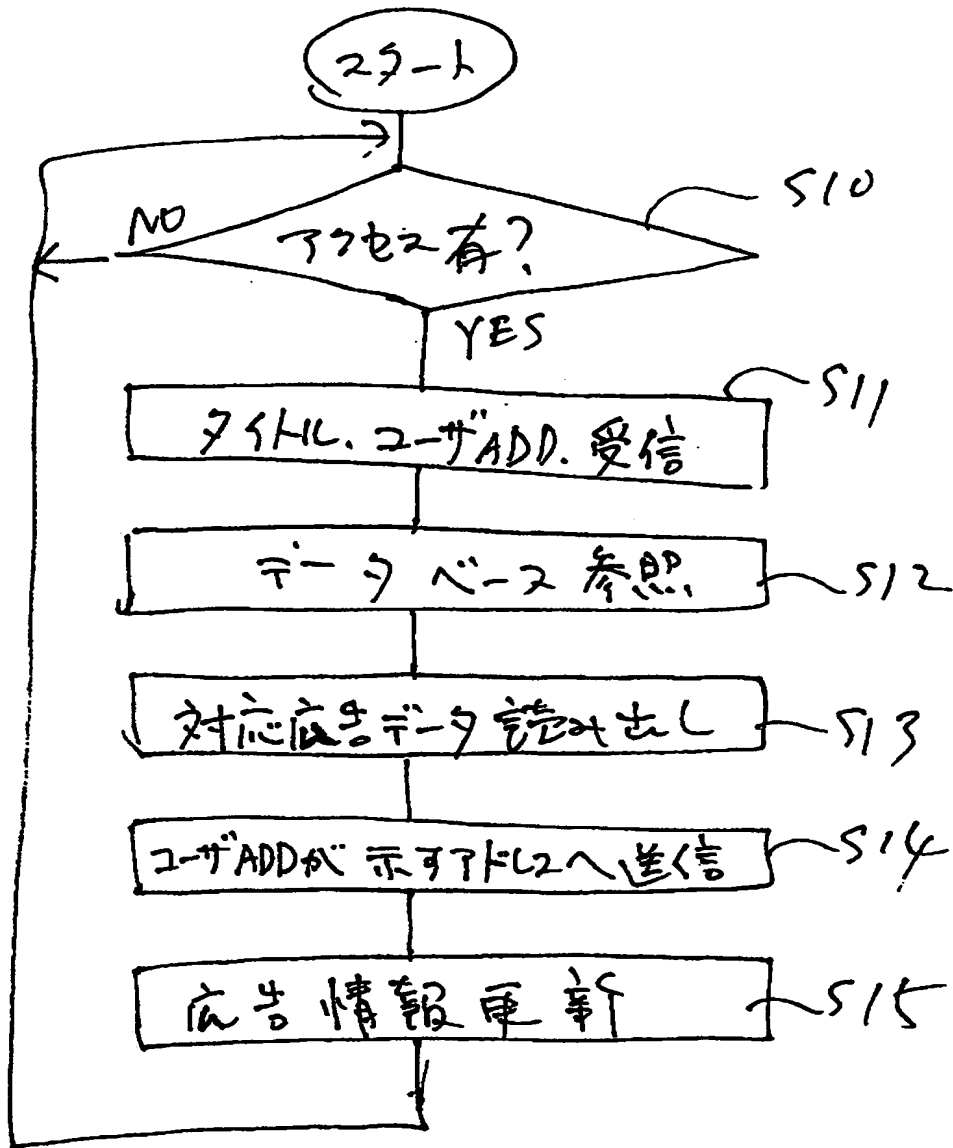 スタート
S10
NO
アクセス有?
YES
S11
タイトル、ユーザADD.受信
データベース参照
S12
対応広告データ読み出し
S13
ユーザADDが示すアドレスへ送信
S14
広告情報更新
S15